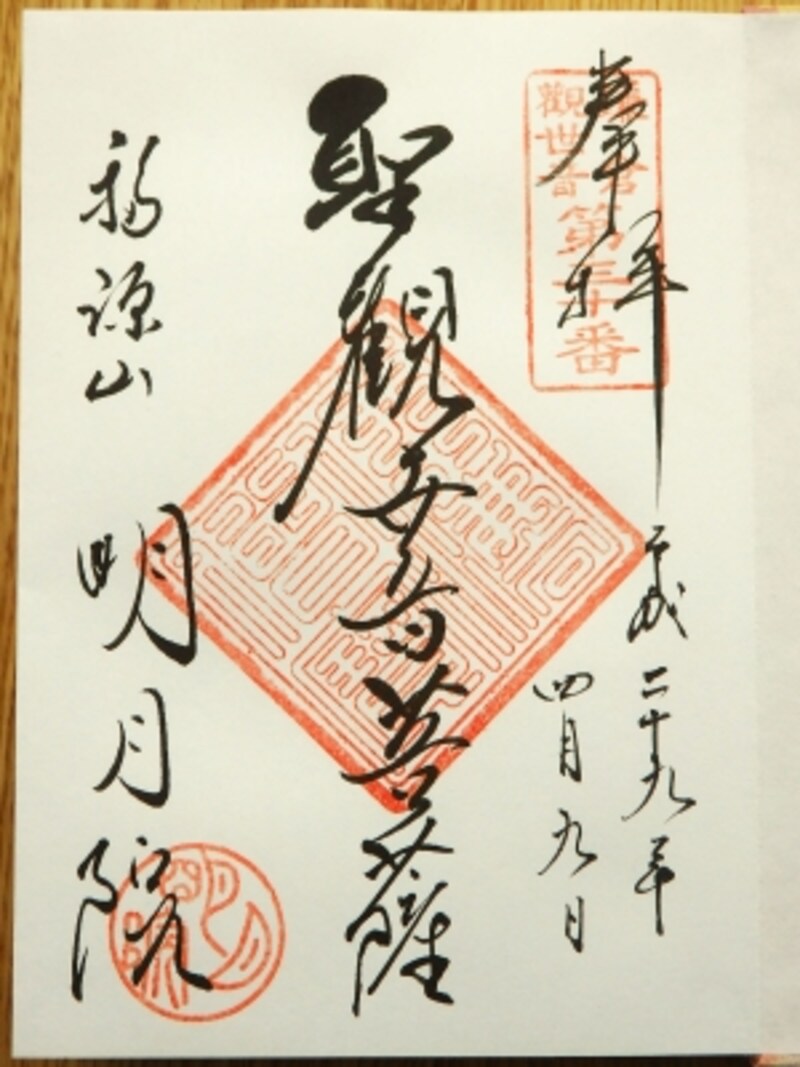 奉拝
平成二十九年
四月九日
觀世音
第三十番
聖観世音菩薩
福源山
明月院